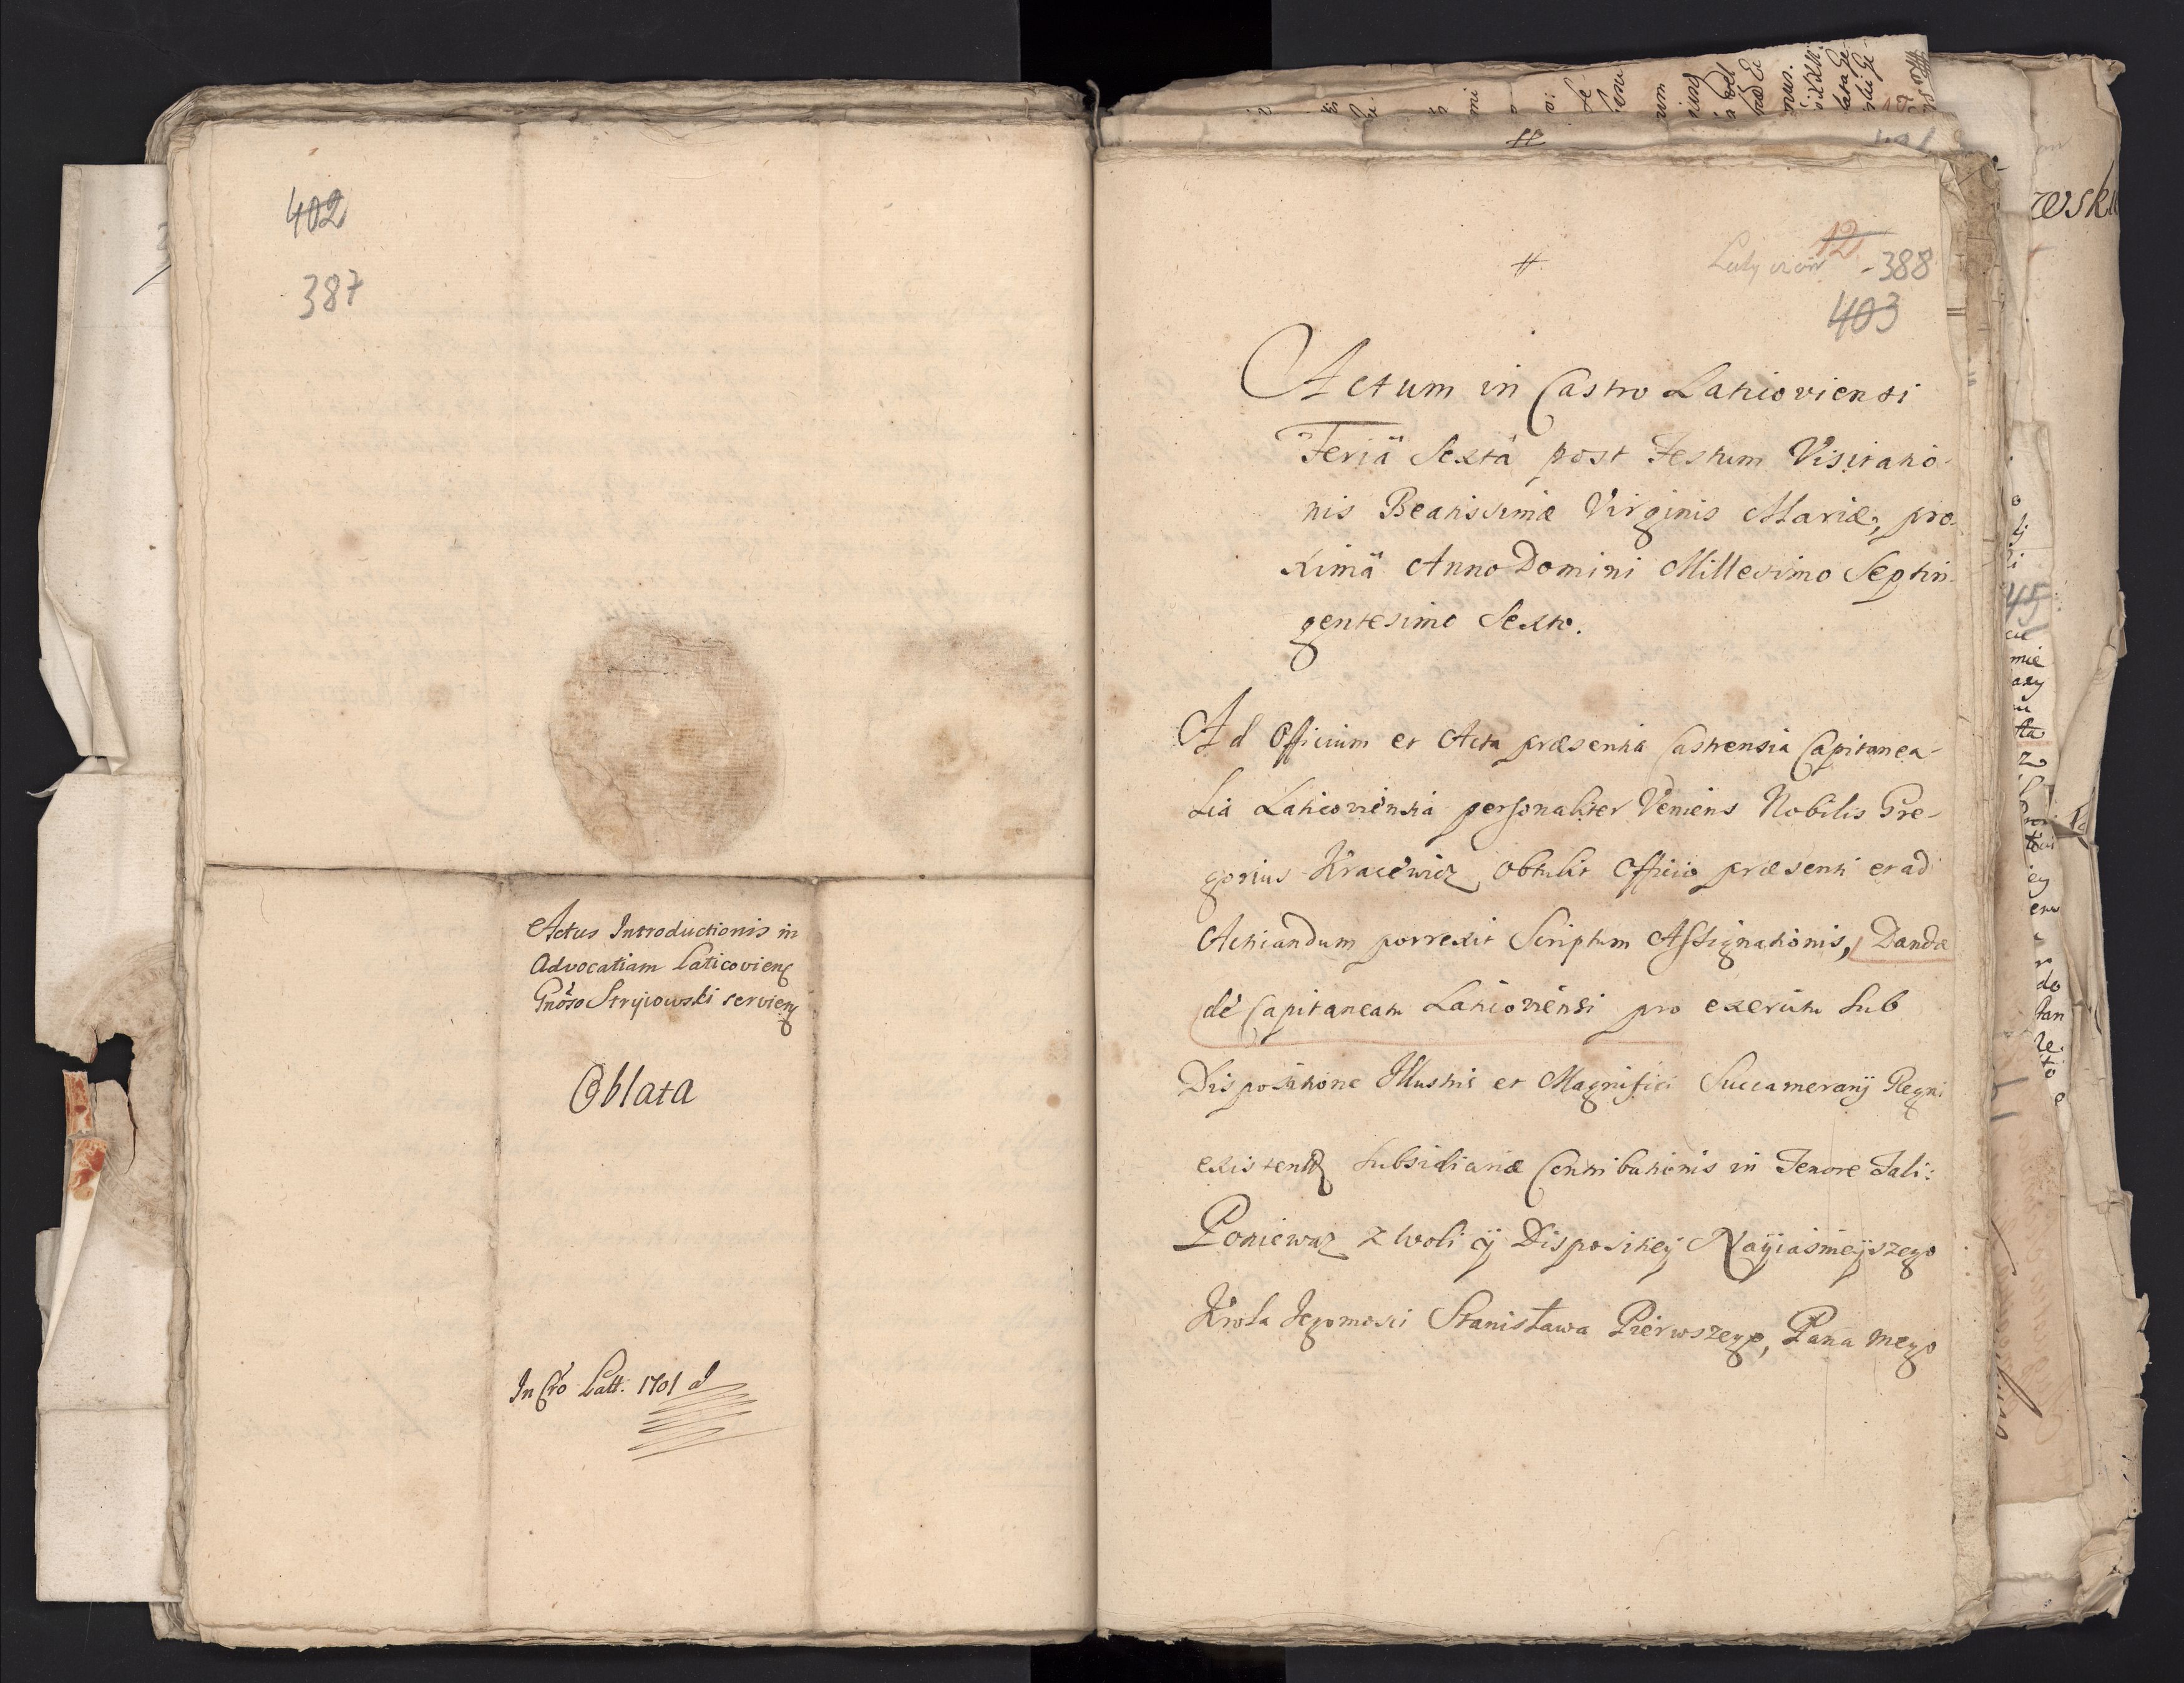 402
387
Actus Introductionis in
Advocatiam Laticovien
Gnoso Stryiowski servien
Oblata
In Cro Latt. 1701 d
#
12
Latyczów -388
403
Actum in Castro Laticoviensi
Feriâ Sextâ post Festum Visitatio-
nis Beatissimæ Virginis Mariæ, pro-
ximâ Anno Domini Millesimo Septin-
gentesimo Sexto.
Ad Officium et Acta præsentia Castrensia Capitanea-
lia Laticoviensia personaliter Veniens Nobilis Gre-
gorius Kracewicz obtulit Officio præsenti et ad
Acticandum porrexit Scriptum Assignationis, Dandæ
de Capitaneatu Laticoviensi pro exercitu sub
Dispositione Illustris et Magnifici Succamerarij Regni
existen subsidiariæ Contributionis in Tenore Tali:
Poniewaz z Woli y Dispositiey Nayiasnieyszego
Krola Jegomosci Stanisława Pierwszego, Pana mego